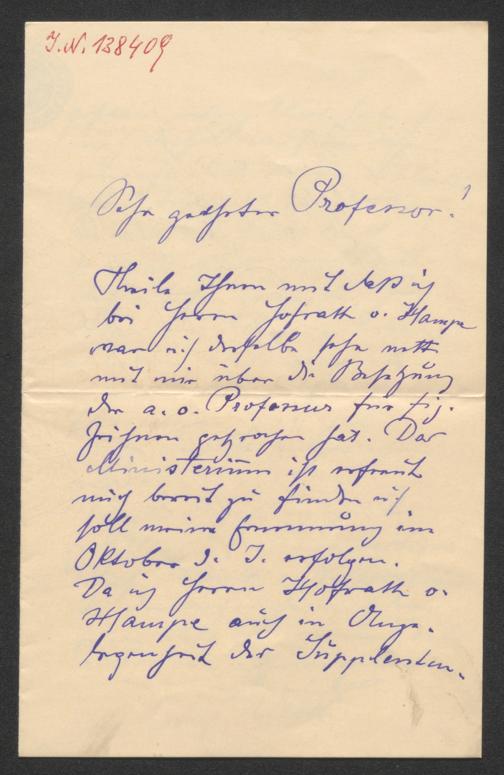 J.N. 138409
Sehr geehrter Professor!
Theile Ihnen mit daß ich
bei Herrn Hofrath v. Hampe
war u. derselbe sehr nett
mit mir über die Besetzung
der a. o. Professur für Fig.
Zeichnen gesprochen hat. Das
Ministerium ist erfreut
mich bereit zu finden u.
soll meine Ernennung im
Oktober d. J. erfolgen.
Da ich Herrn Hofrath v.
Hampe auch in Ange-
legenheit der Supplenten-